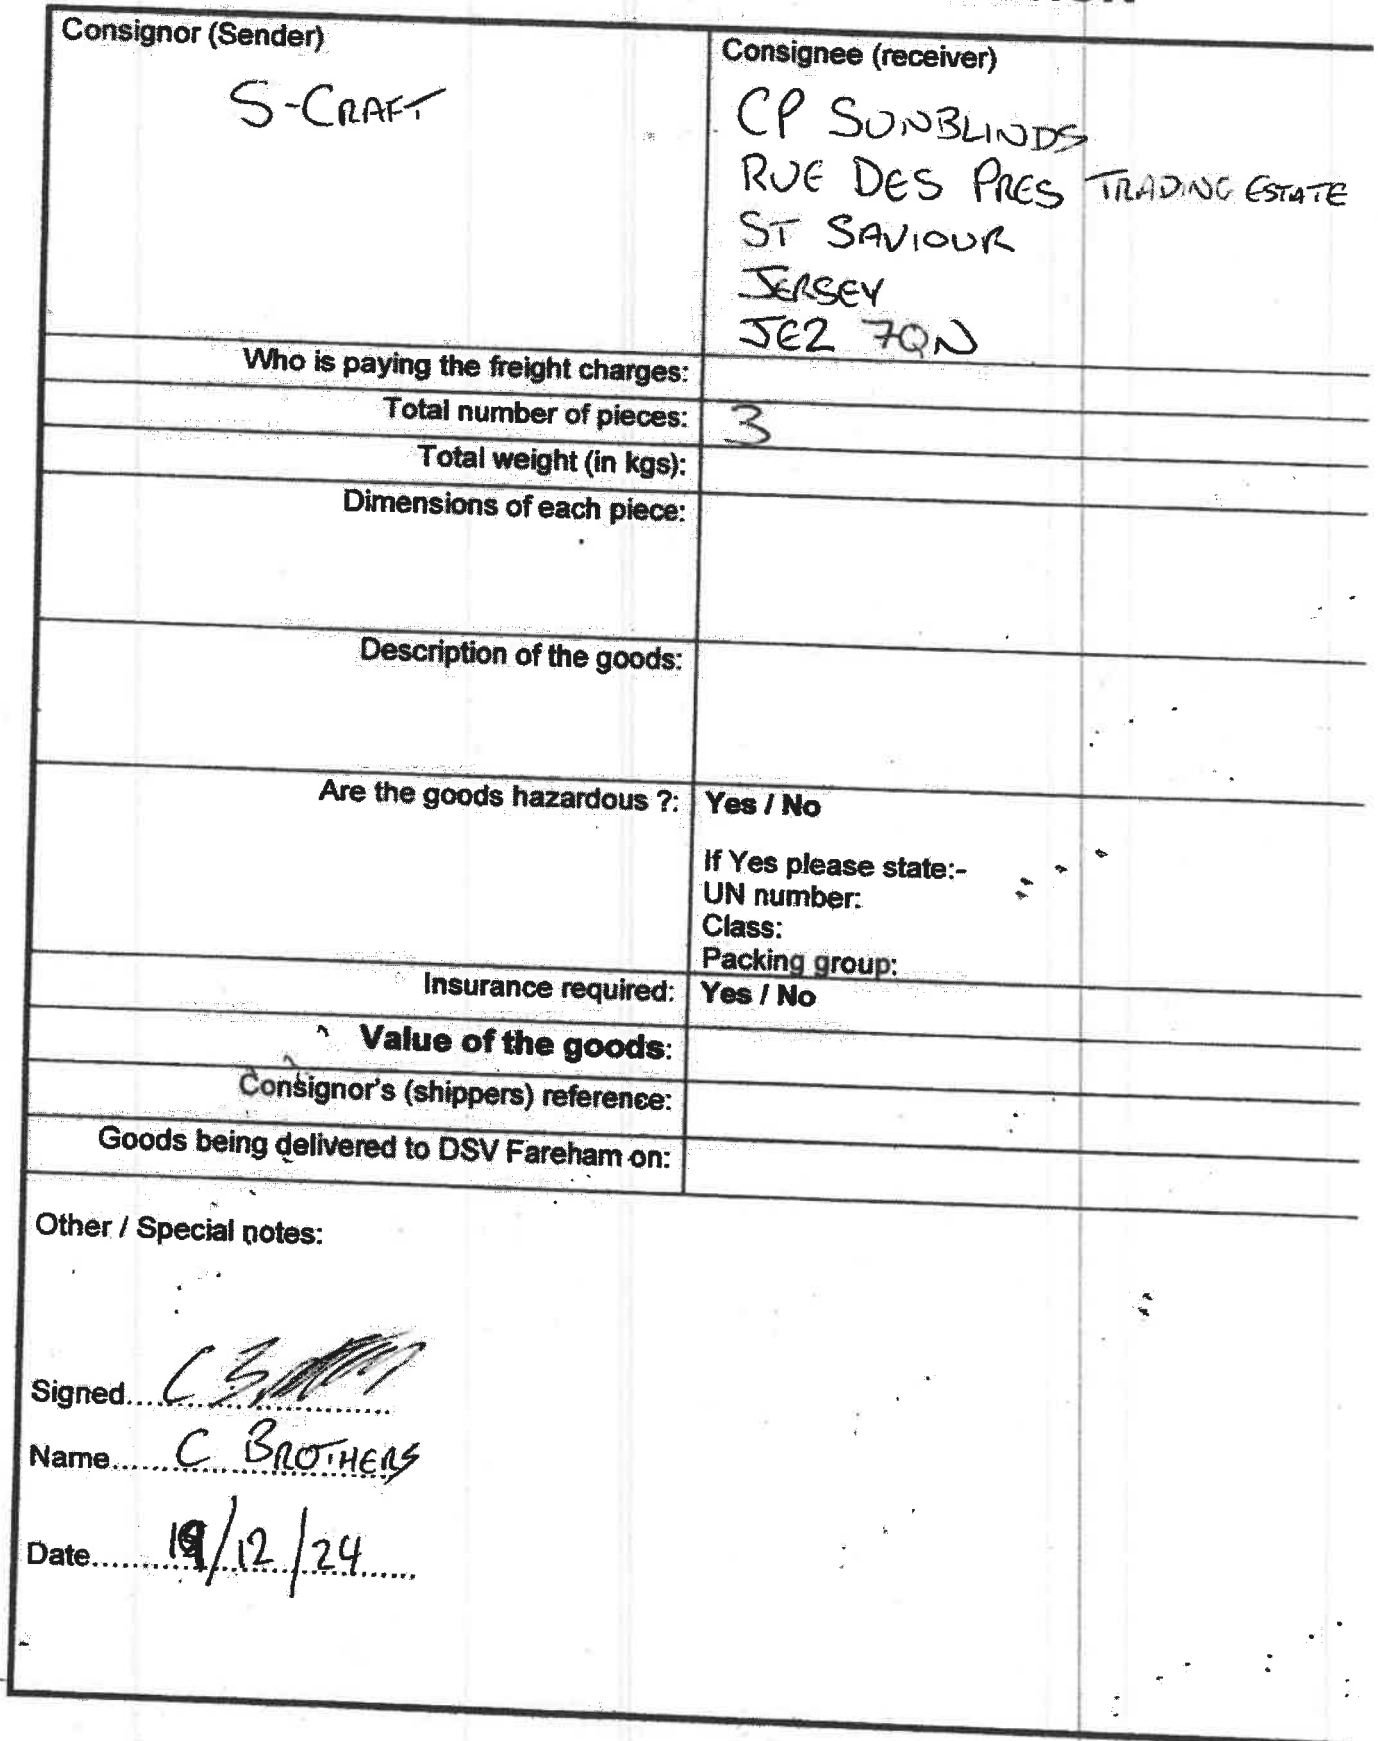 Consignor (Sender)
S-CRAFT
Consignee (receiver)
CP SUNBLINDS
RUE DES PRES TRADING ESTATE
ST SAVIOUR
JERSEY
JE2 7QN
Who is paying the freight charges:
Total number of pieces: 3
Total weight (in kgs):
Dimensions of each piece:
Description of the goods:
Are the goods hazardous ?: Yes / No
If Yes please state:-
UN number:
Class:
Packing group:
Insurance required: Yes / No
Value of the goods:
Consignor's (shippers) reference:
Goods being delivered to DSV Fareham on:
Other / Special notes:
Signed....................
Name.....C BROTHERS
Date.......19/12/24.....